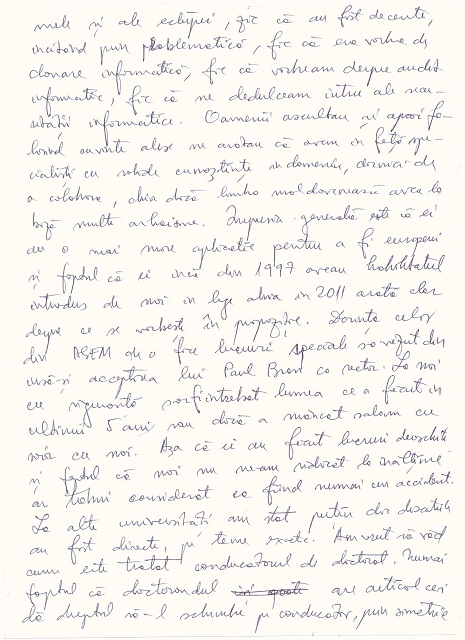 mele și ale echipei, fie că au fost decente,
incitând prin problematică, fie că era vorba de
clonare informatică, fie că vorbeam despre audit
informatic, fie că ne dedulceam întru ale secu-
rității informatice. Oamenii ascultau și apoi fo-
losind cuvinte alese ne arătau că avem în față spe-
cialiști cu solide cunoștințe în domeniu, dornici de
a colabora, chiar dacă limba moldovenească avea la
bază multe arhaisme. Impresia generală este că ei
au o mai mare aplicație pentru a fi europeni
și faptul că ei încă din 1997 aveau habilitatul
introdus de noi în lege abia în 2011 arată clar
despre ce se vorbește în propoziție. Dorința celor
din ASEM de a face lucruri speciale s-a văzut din
însăși acceptarea lui Paul Bran ca rector. La noi
cu siguranță s-ar fi întrebat lumea ce a făcut în
ultimii 5 ani sau dacă a mâncat salam cu
soia cu noi. Așa că ei au făcut lucruri deosebite
și faptul că noi nu ne-am ridicat la înălțime
au tot considerat ca fiind numai un accident.
La alte universități am stat puțin dar discuțiile
au fost directe, pe teme exacte. Am vrut să văd
cum este tratat conducătorul de doctorat. Numai
faptul că doctorandul are articol care-i
dă dreptul să-l schimbe pe conducător, prin simetrie